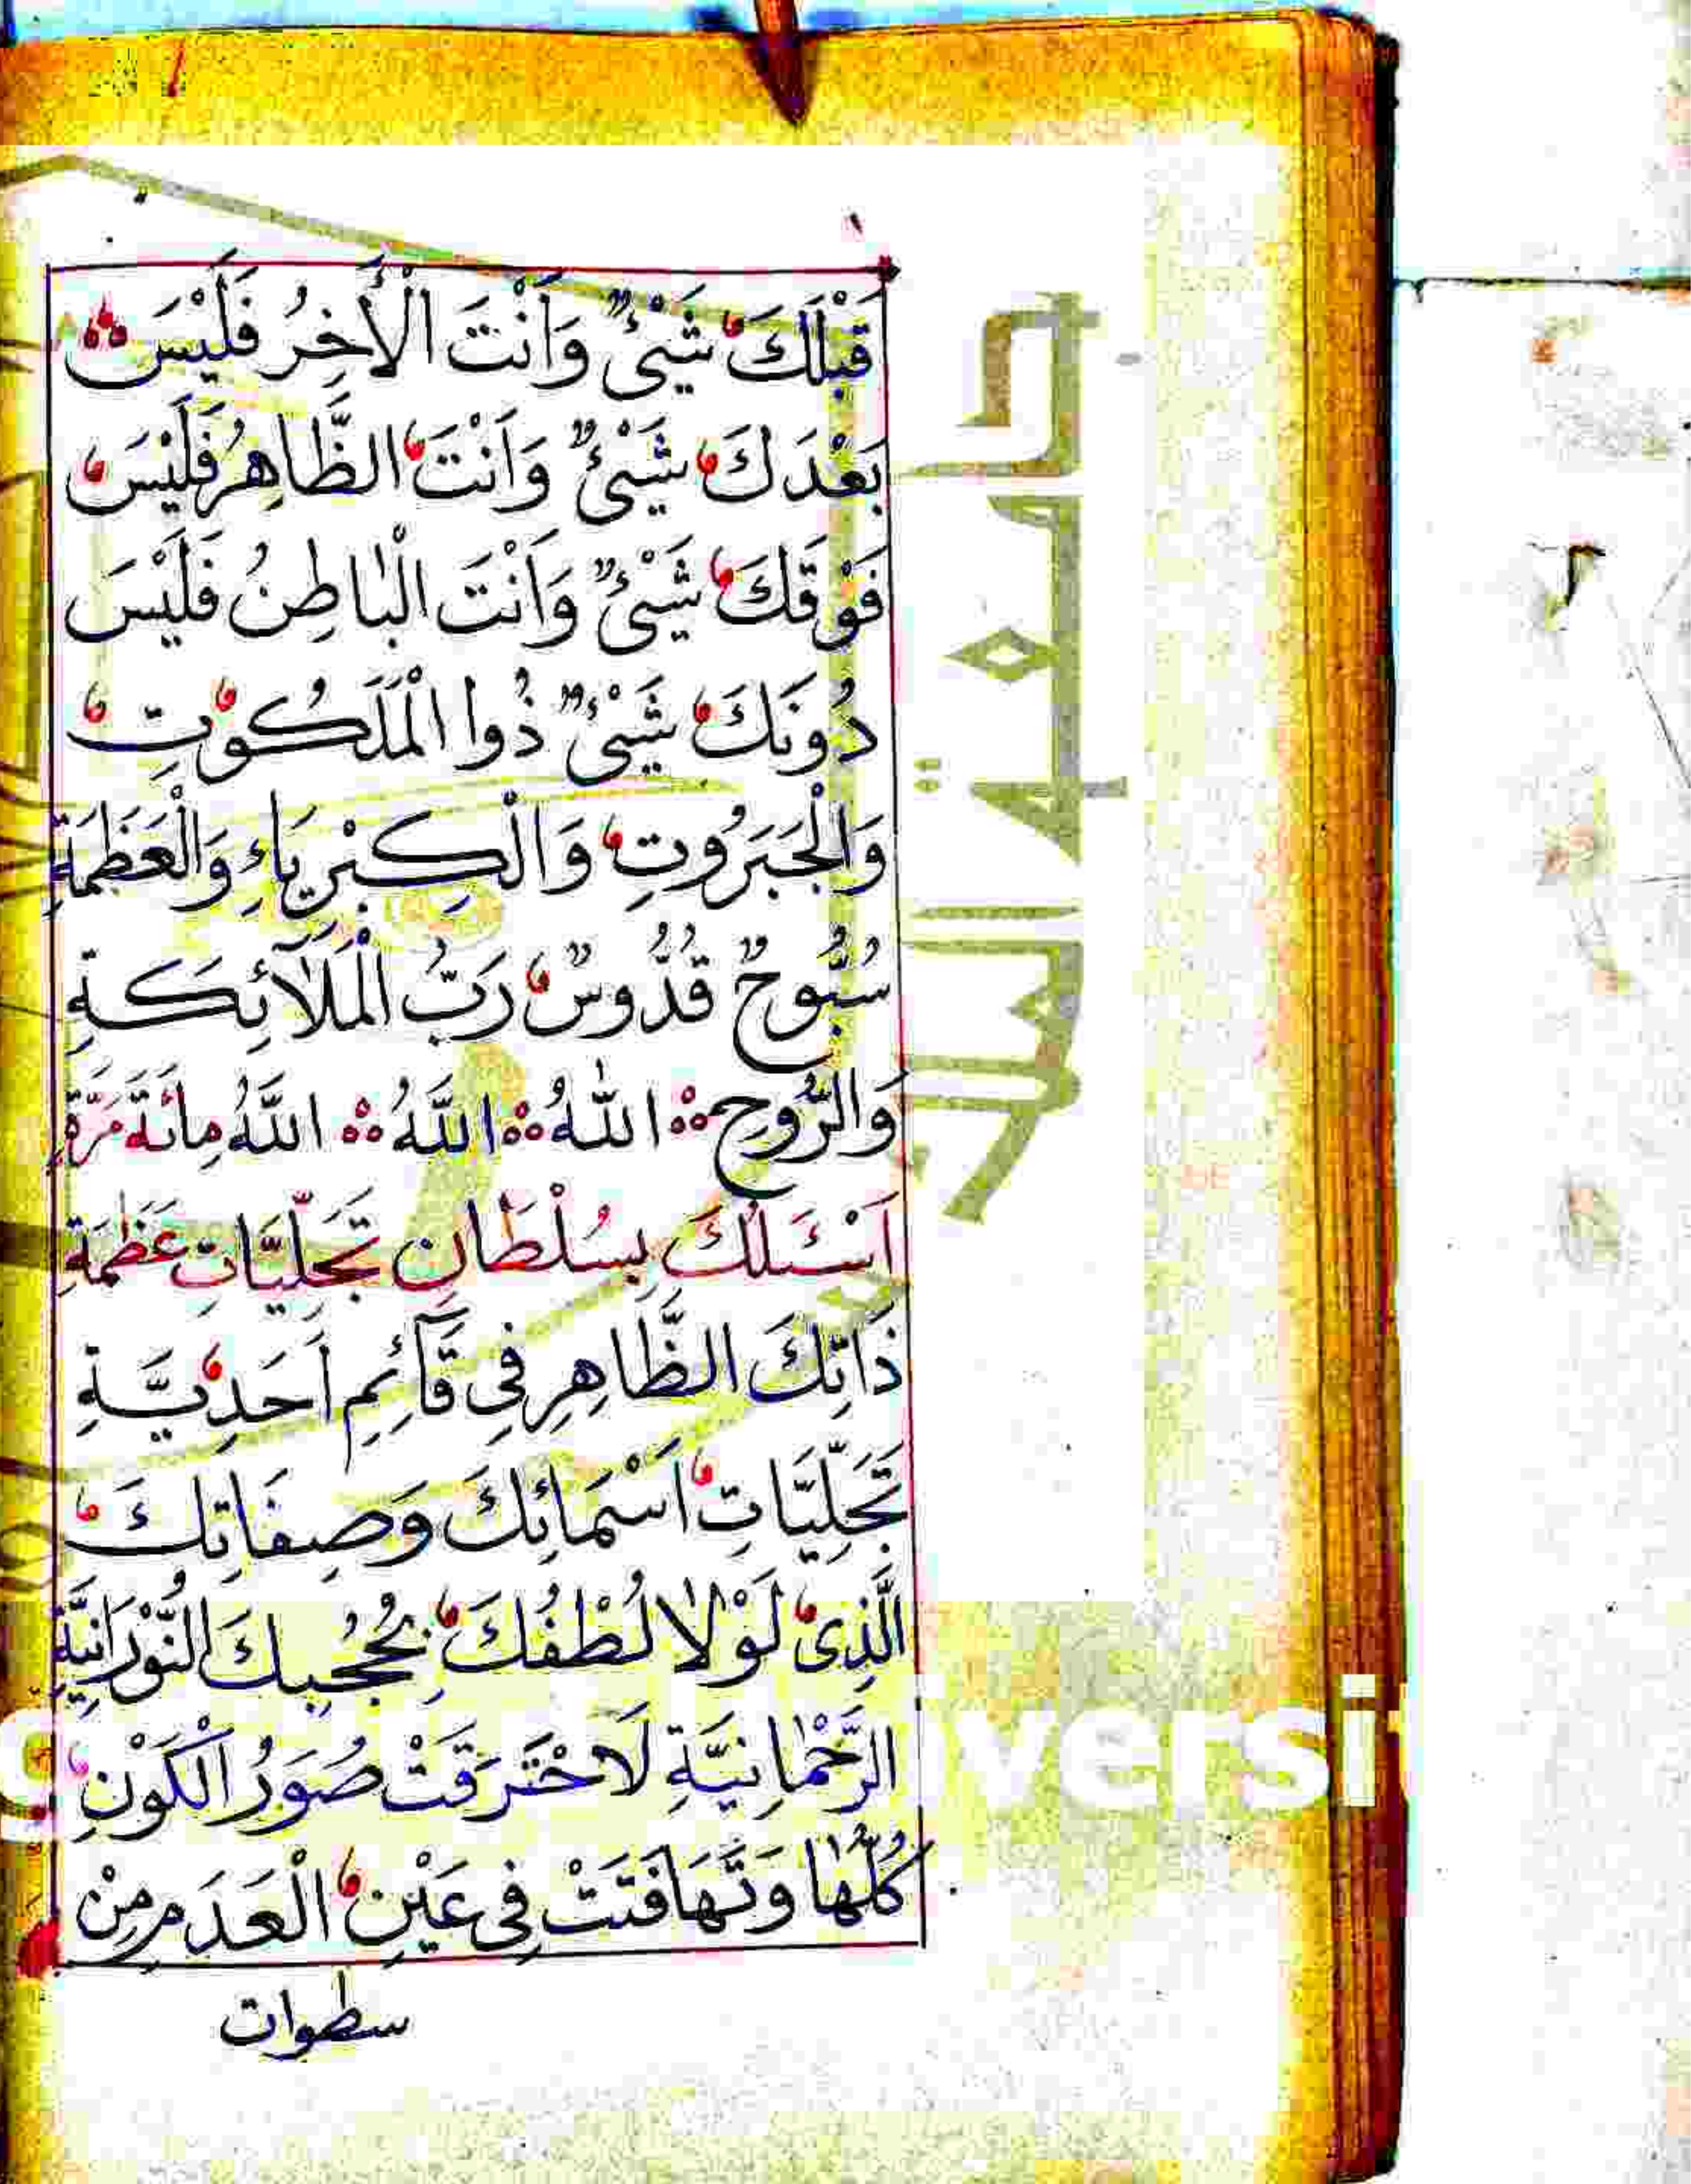 قَبْلَكَ شَيْئٌ وَاَنْتَ الْأٰخِرُ فَلَيْسَ
بَعْدَكَ شَيْئٌ وَاَنْتَ الظَّاهِرُ فَلَيْسَ
فَوْقَكَ شَيْئٌ وَاَنْتَ الْبَاطِنُ فَلَيْسَ
دُونَكَ شَيْئٌ ذُوا الْمَلَكُوتِ
وَالْجَبَرُوتِ وَالْكِبْرِيَاءِ وَالْعَظَمَةِ
سُبُّوحٌ قُدُّوسٌ رَبُّ الْمَلَآئِكَةِ
وَالرُّوحِ اَللّٰهُ اَللّٰهُ اَللّٰهُ مِائَةَ مَرَّةٍ
اَسْئَلُكَ بِسُلْطَانِ تَجَلِّيَّاتِ عَظَمَةِ
ذَاتِكَ الظَّاهِرِ فِي قَآئِمِ اَحَدِيَّةِ
تَجَلِّيَّاتِ اَسْمَائِكَ وَصِفَاتِكَ
الَّذِى لَوْلَا لُطْفُكَ بِحُجُبِكَ النُّوْرَانِيَّةِ
الرَّحْمَانِيَّةِ لَاحْتَرَقَتْ صُوَرُ الْكَوْنِ
كُلُّهَا وَتَهَافَتَتْ فِى عَيْنِ الْعَدَمِ مِنْ
سطوات
جامعة الملك
versit